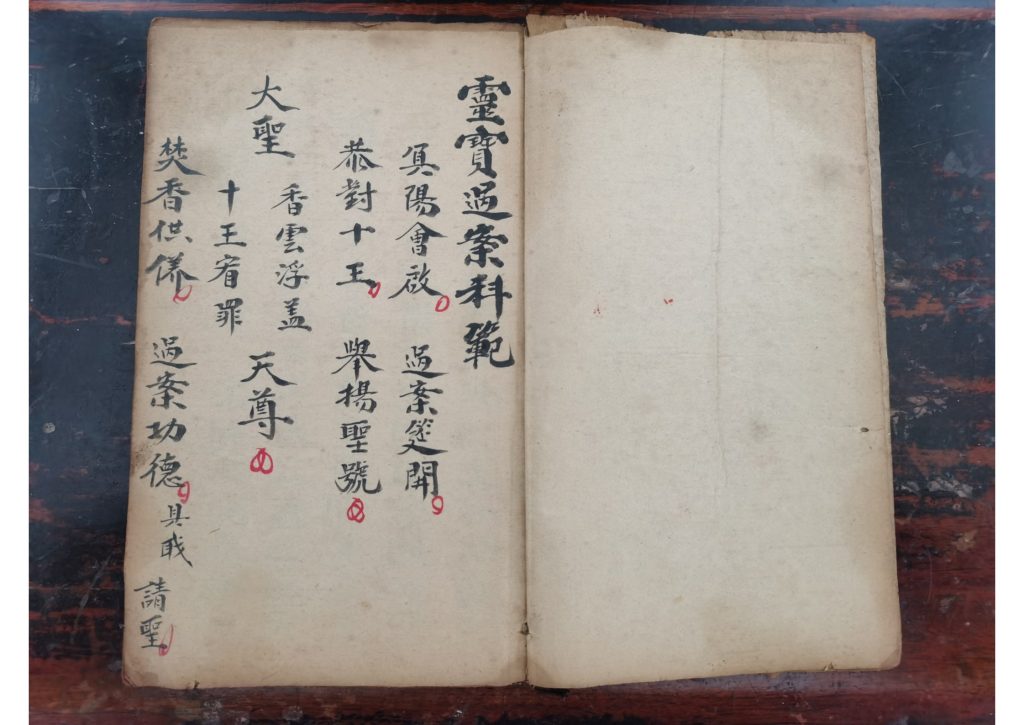 靈寶過案科範
冥陽會啟 過案筵開
恭對十王 舉揚聖號
大聖 香雲浮盖 十王宥罪 天尊
焚香供儀 過案功德 具 請聖